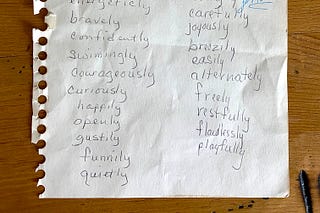 energeticly
bravely
confidently
swimingly
courageously
curiously
happily
openly
gustily
funnily
quietly
carefully
joyously
brazily
easily
alternately
freely
restfully
flawlessly
playfully